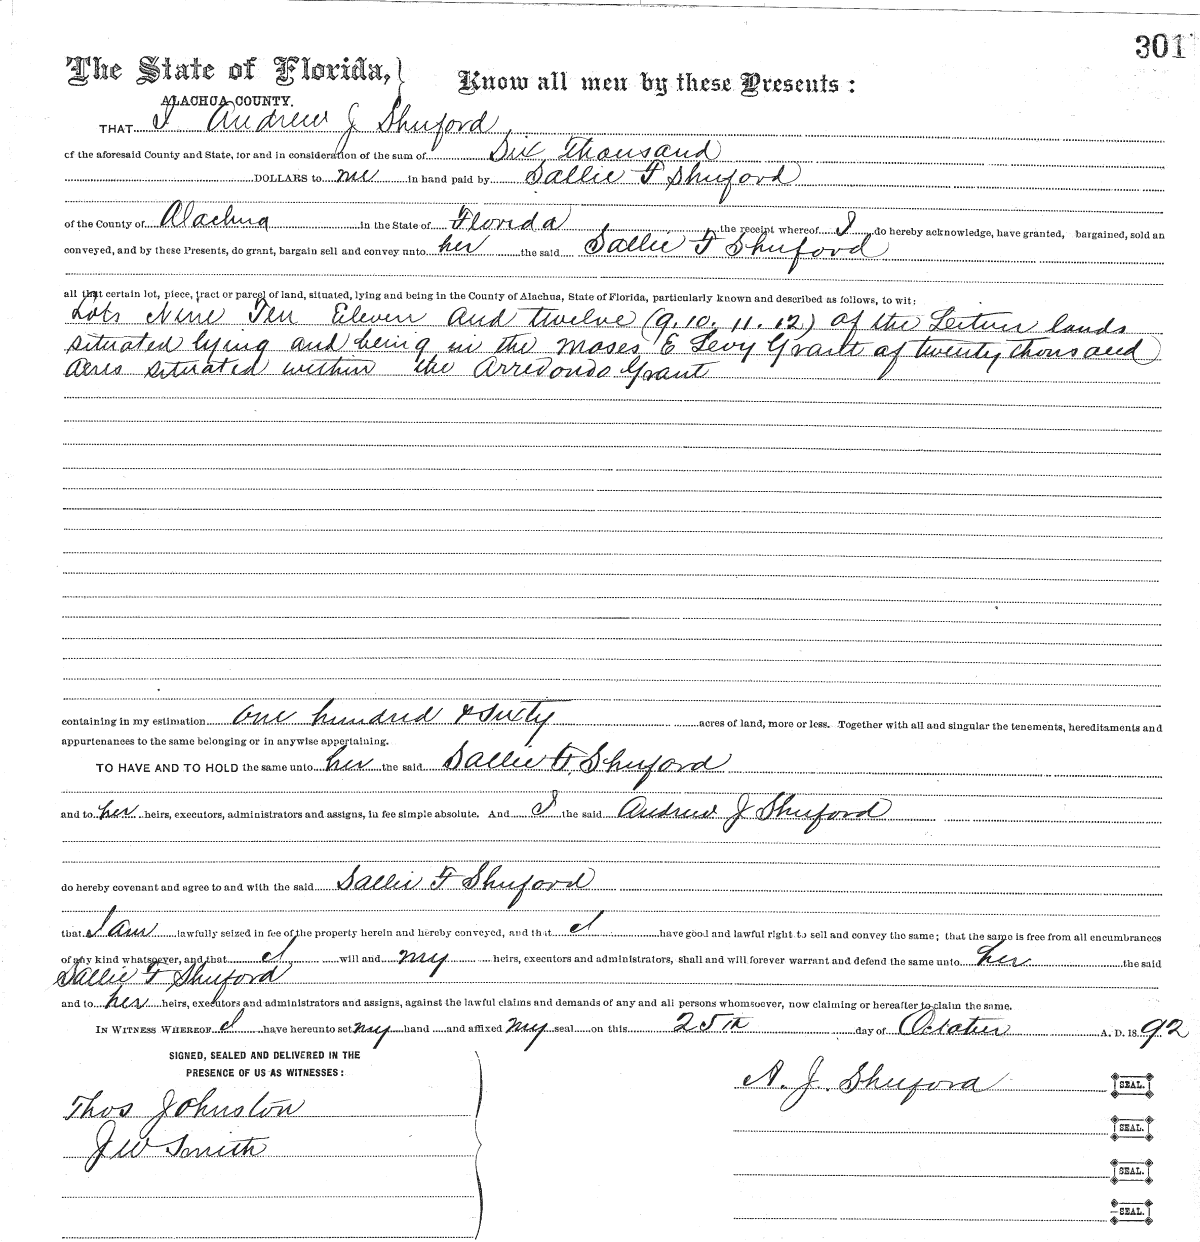 301
The State of Florida,
Know all men by these Presents :
ALACHUA COUNTY.
THAT I Andrew J Shuford
of the aforesaid County and State, for and in consideration of the sum of Six Thousand
DOLLARS to me in hand paid by Sallie F Shuford
of the County of Alachua in the State of Florida the receipt whereof I do hereby acknowledge, have granted, bargained, sold an
conveyed, and by these Presents, do grant, bargain sell and convey unto her the said Sallie F Shuford
all that certain lot, piece, tract or parcel of land, situated, lying and being in the County of Alachua, State of Florida, particularly known and described as follows, to wit:
Lots Nine Ten Eleven and twelve (9. 10. 11. 12) of the lands
situated lying and being in the Moses E Levy Grant of twenty thousand
acres situated within the Arredondo Grant
containing in my estimation one hundred & sixty acres of land, more or less. Together with all and singular the tenements, hereditaments and
appurtenances to the same belonging or in anywise appertaining.
TO HAVE AND TO HOLD the same unto her the said Sallie F. Shuford
and to her heirs, executors, administrators and assigns, in fee simple absolute. And I the said Andrew J Shuford
do hereby covenant and agree to and with the said Sallie F Shuford
that I am lawfully seized in fee of the property herein and hereby conveyed, and that I have good and lawful right to sell and convey the same; that the same is free from all encumbrances
of any kind whatsoever, and that I will and my heirs, executors and administrators, shall and will forever warrant and defend the same unto her the said
Sallie F Shuford
and to her heirs, executors and administrators and assigns, against the lawful claims and demands of any and all persons whomsoever, now claiming or hereafter to claim the same.
IN WITNESS WHEREOF I have hereunto set my hand and affixed my seal on this 25th day of October A. D. 1892
SIGNED, SEALED AND DELIVERED IN THE
PRESENCE OF US AS WITNESSES :
Thos Johnston
J W Smith
A. J. Shuford SEAL.
SEAL.
SEAL.
SEAL.